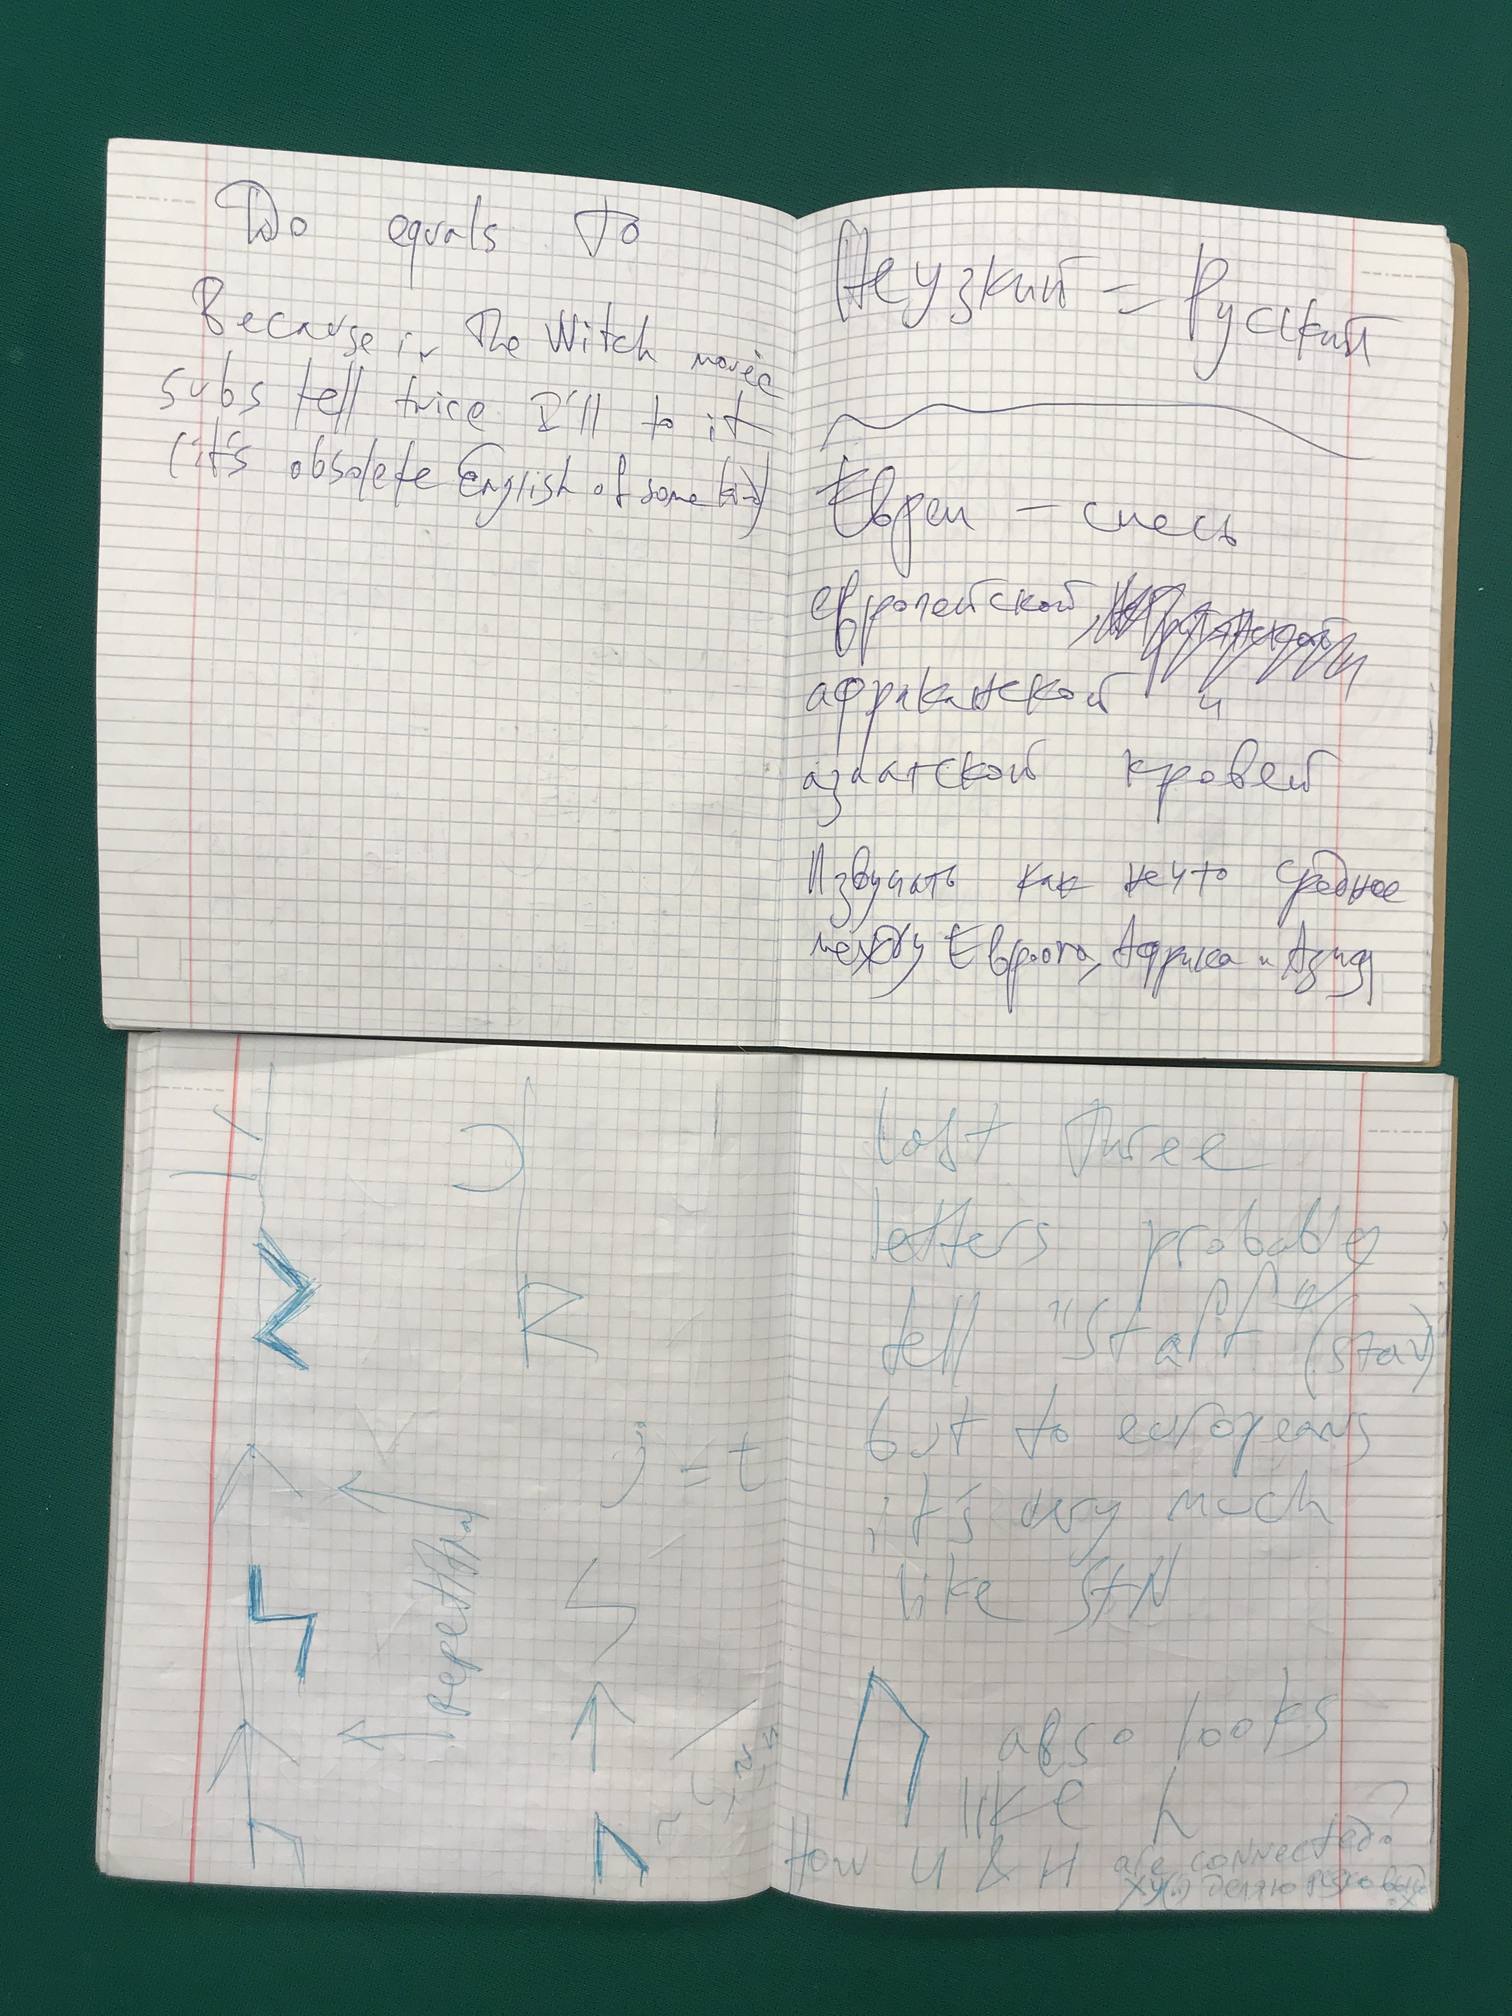 Do equals To
Because in The Witch movie
subs tell twice I'll to it
(it's obsolete English of some kind)
Неузкий = Русский
Евреи – смесь
европейской,
африканской и
азиатской кровей
Извучать как нечто среднее
между Европа, Африка и Азия
j = t
Last Three
letters probably
tell "Staff" (stav)
but to europeans
it's very much
like StN
also looks
like h
How U & H are connected?